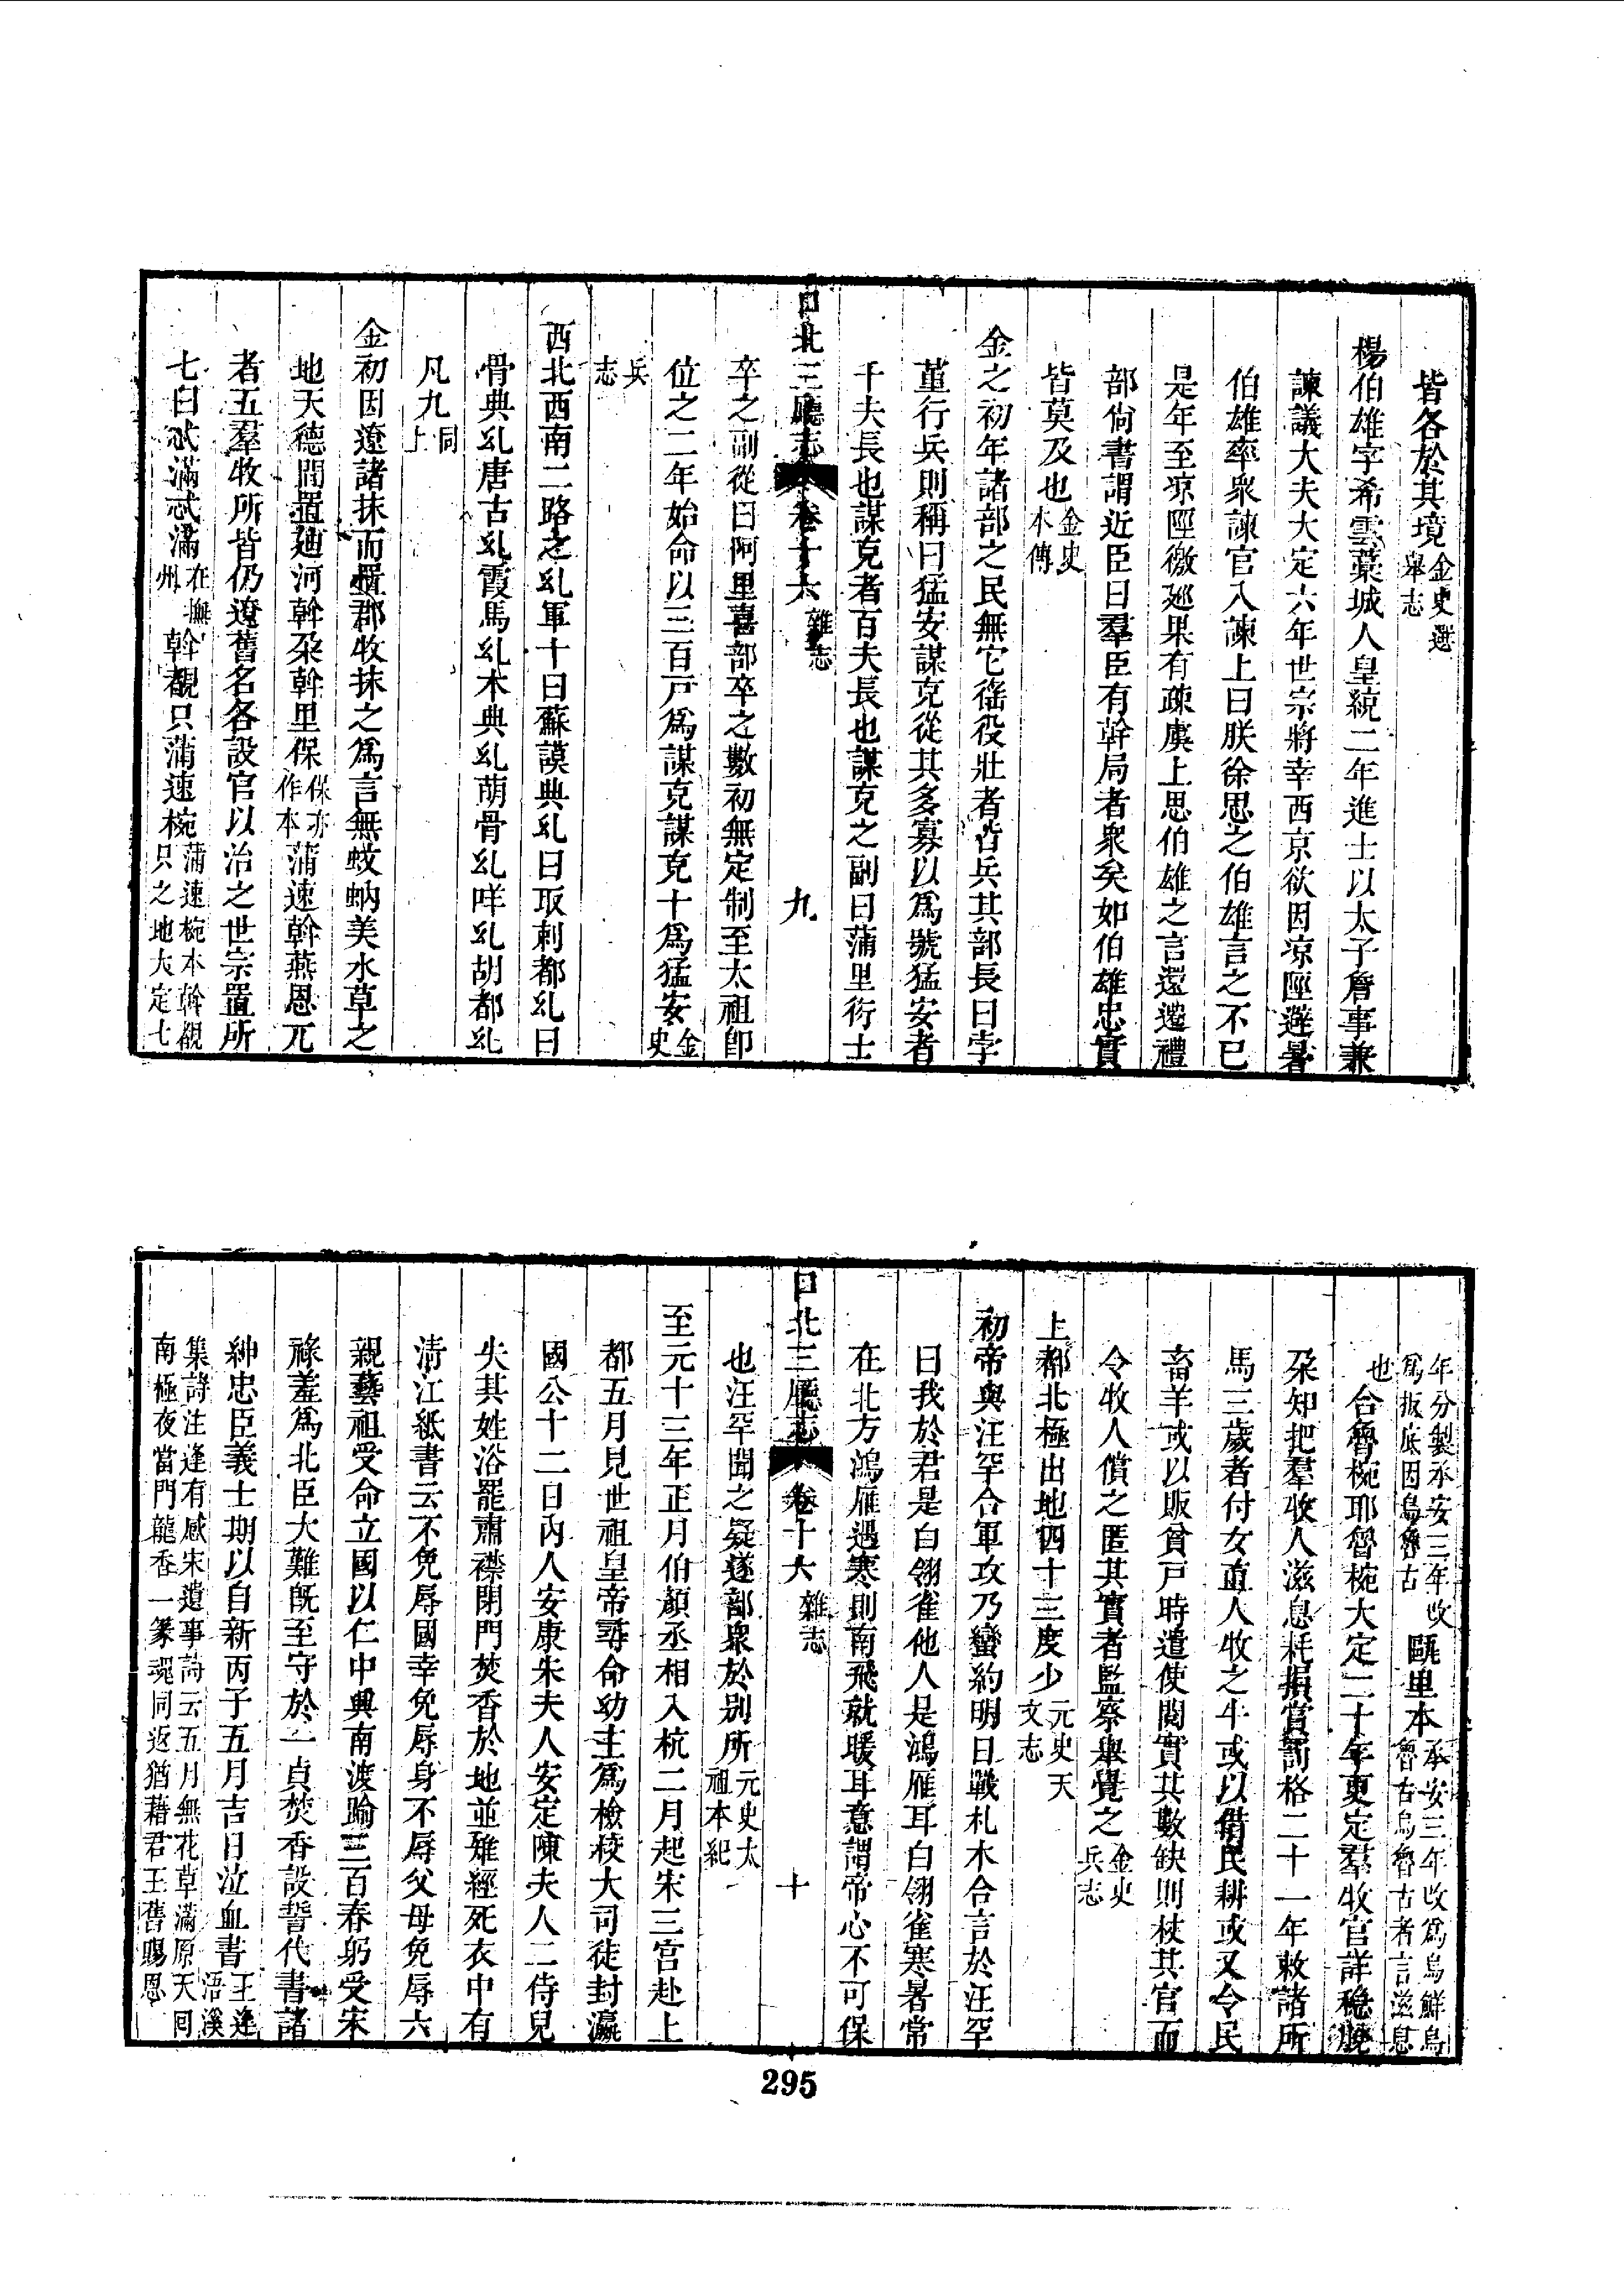 皆各於其境金史選舉志
楊伯雄字希雲藁城人皇統二年進士以太子詹事兼
諫議大夫大定六年世宗將幸西京欲因凉陘避暑
伯雄率衆諫官入諫上曰朕徐思之伯雄言之不已
是年至凉陘徼廵果有疎虞上思伯雄之言還遷禮
部尙書謂近臣曰羣臣有幹局者衆矣如伯雄忠實
皆莫及也金史本傳
金之初年諸部之民無它徭役壯者皆兵其部長曰孛
菫行兵則稱曰猛安謀克從其多寡以爲號猛安者
千夫長也謀克者百夫長也謀克之副曰蒲里衍士
口北三廳志 卷十六 雜志 九
卒之副從曰阿里喜部卒之數初無定制至太祖卽
位之二年始命以三百戸爲謀克謀克十爲猛安金史
兵志
西北西南二路之乣軍十曰蘇謨典乣曰取剌都乣曰
骨典乣唐古乣霞馬乣木典乣萠骨乣咩乣胡都乣
凡九同上
金初因遼諸抹而置郡牧抹之爲言無蚊蚋美水草之
地天德間置廸河斡朶斡里保保亦作本蒲速斡燕恩兀
者五羣牧所皆仍遼舊名各設官以治之世宗置所
七曰忒滿忒滿在撫州斡覩只蒲速椀蒲速椀本斡覩只之地大定七
年分製承安三年改爲板底因烏魯古甌里本承安三年改爲烏鮮烏魯古烏魯古者言滋息
也合魯椀耶魯椀大定二十年更定羣牧官詳穩脫
朶知把羣牧人滋息耗損賞罰格二十一年敕諸所
馬三歲者付女直人牧之牛或以借民耕或又令民
畜羊或以賑貧戸時遣使閱實其數缺則杖其官而
令牧人償之匿其實者監察舉覺之金史兵志
上都北極出地四十三度少元史天文志
初帝與汪罕合軍攻乃蠻約明日戰札木合言於汪罕
曰我於君是白翎雀他人是鴻雁耳白翎雀寒暑常
在北方鴻雁遇寒則南飛就暖耳意謂帝心不可保
口北三廳志 卷十六 雜志 十
也汪罕聞之疑遂部衆於別所元史太祖本紀
至元十三年正月伯顏丞相入杭二月起朱三宮赴上
都五月見世祖皇帝尋命幼主爲檢校大司徒封瀛
國公十二日內人安康朱夫人安定陳夫人二侍兒
失其姓浴罷肅襟閉門焚香於地並雉經死衣中有
淸江紙書云不免辱國幸免辱身不辱父母免辱六
親藝祖受命立國以仁中興南渡踰三百春躬受宋
祿羞爲北臣大難旣至守於一貞焚香設誓代書諸
紳忠臣義士期以自新丙子五月吉日泣血書王逢浯溪
集詩注逢有感宋遺事詩云五月無花草滿原天囘南極夜當門龍香一篆魂同返猶藉君王舊賜恩
295